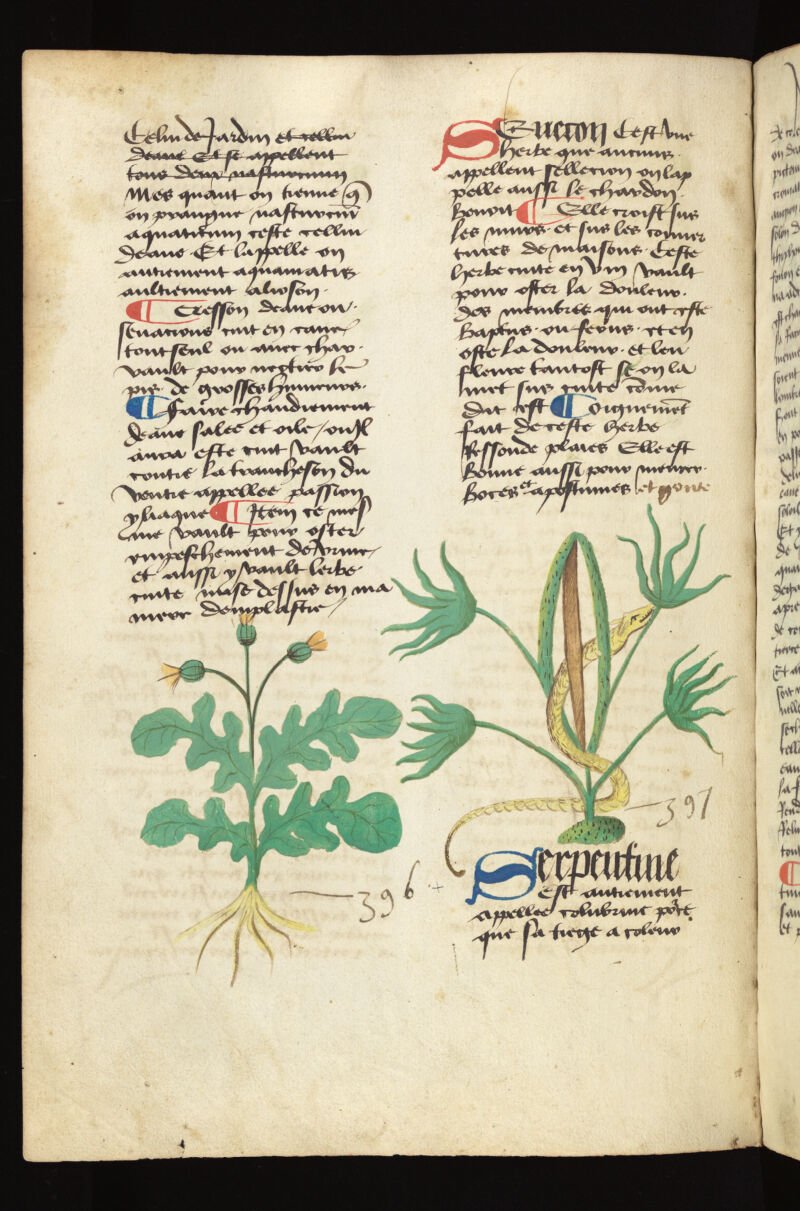 Celui de Jardin et cellui
deaue Et se appellent
tous deux nasturcium
Mes quant on trenue q̃
on prangne nasturciũ
aquaticum ceste cellui
deaue Et lappelle on
autrement aquamatis
aultrement alixson
¶ Cresson deaue ou
senacions cuit en eaue
tout seul ou auec char
vault pour nectier le
pis de grosses humeurs
¶ Faire chaudement
deaue salee et oile ou Il
aura este cuit vault
contre la trancheson du
ventre appellee passion
yliaque ¶ Item ce mes
me vault pour oster
empeschement dorine
et aussi y vault lerbe
cuite mise dessus en ma
niere demplastre
396
Seuccon Cest vne
herbe que aucuns
appellent sellecion on lap
pelle aussi le chardon
benoit ¶ Elle croist sus
les murs et sus les couuer
tures de maisons Ceste
herbe cuite en vin vault
pour oster la douleur
des membres qui ont este
batus ou ferus et en
oste la douleur et len
fleure tantost se on la
met sus cuite cõme
dit est ¶ Oignemẽt
fait de ceste herbe
ressoude plaies Elle est
bonne aussi pour meurer
boces et apostumes et goute
397
Serpentine
Est autrement
appellee colubrine põce
que sa tiege a coleur